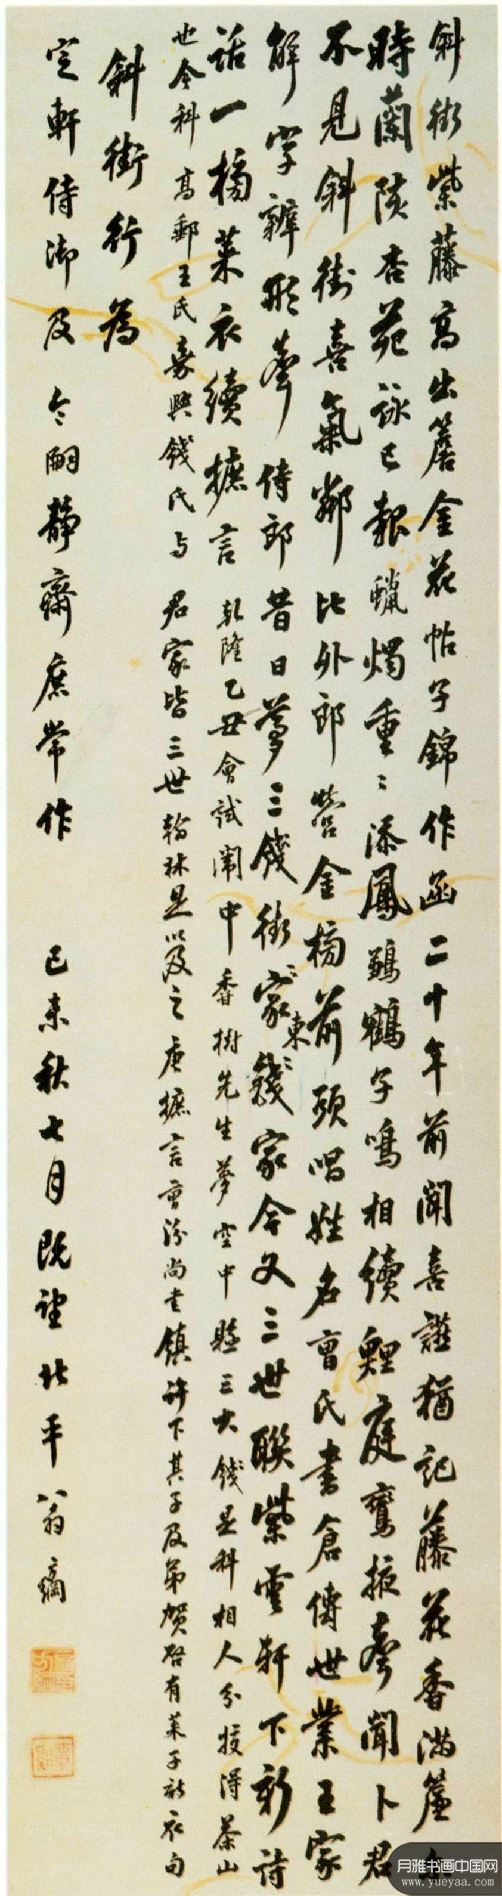 斜街紫藤高出簷金花帖子錦作函二十年前聞喜讌猶記藤花香滿簾
時蘭陔杏苑詠已報蠟燭重〻添鳳鷄鶴子鳴相續鯉庭鸞掖聲聞卜君
不見斜街喜氣鄰比外郎營金榜前頭唱姓名曹氏書倉傳世業王家
解字辦形聲侍郎昔日夢三錢街東錢家今又三世聯紫雲軒下新詩
話一榜萊衣續摭言乾隆乙丑會試闈中香樹先生夢空中懸三大錢是科相人分校得茶山
也今科高郵王氏嘉興錢氏与君家皆三世翰林是以及之唐摭言曹汾尚書鎮許下其子及弟賀啓有萊子衫衣句
斜街行為
定軒侍御及令嗣靜齋庶常作
己未秋七月既望北平翁方綱
月雅书画中国网
www.yueyaa.com